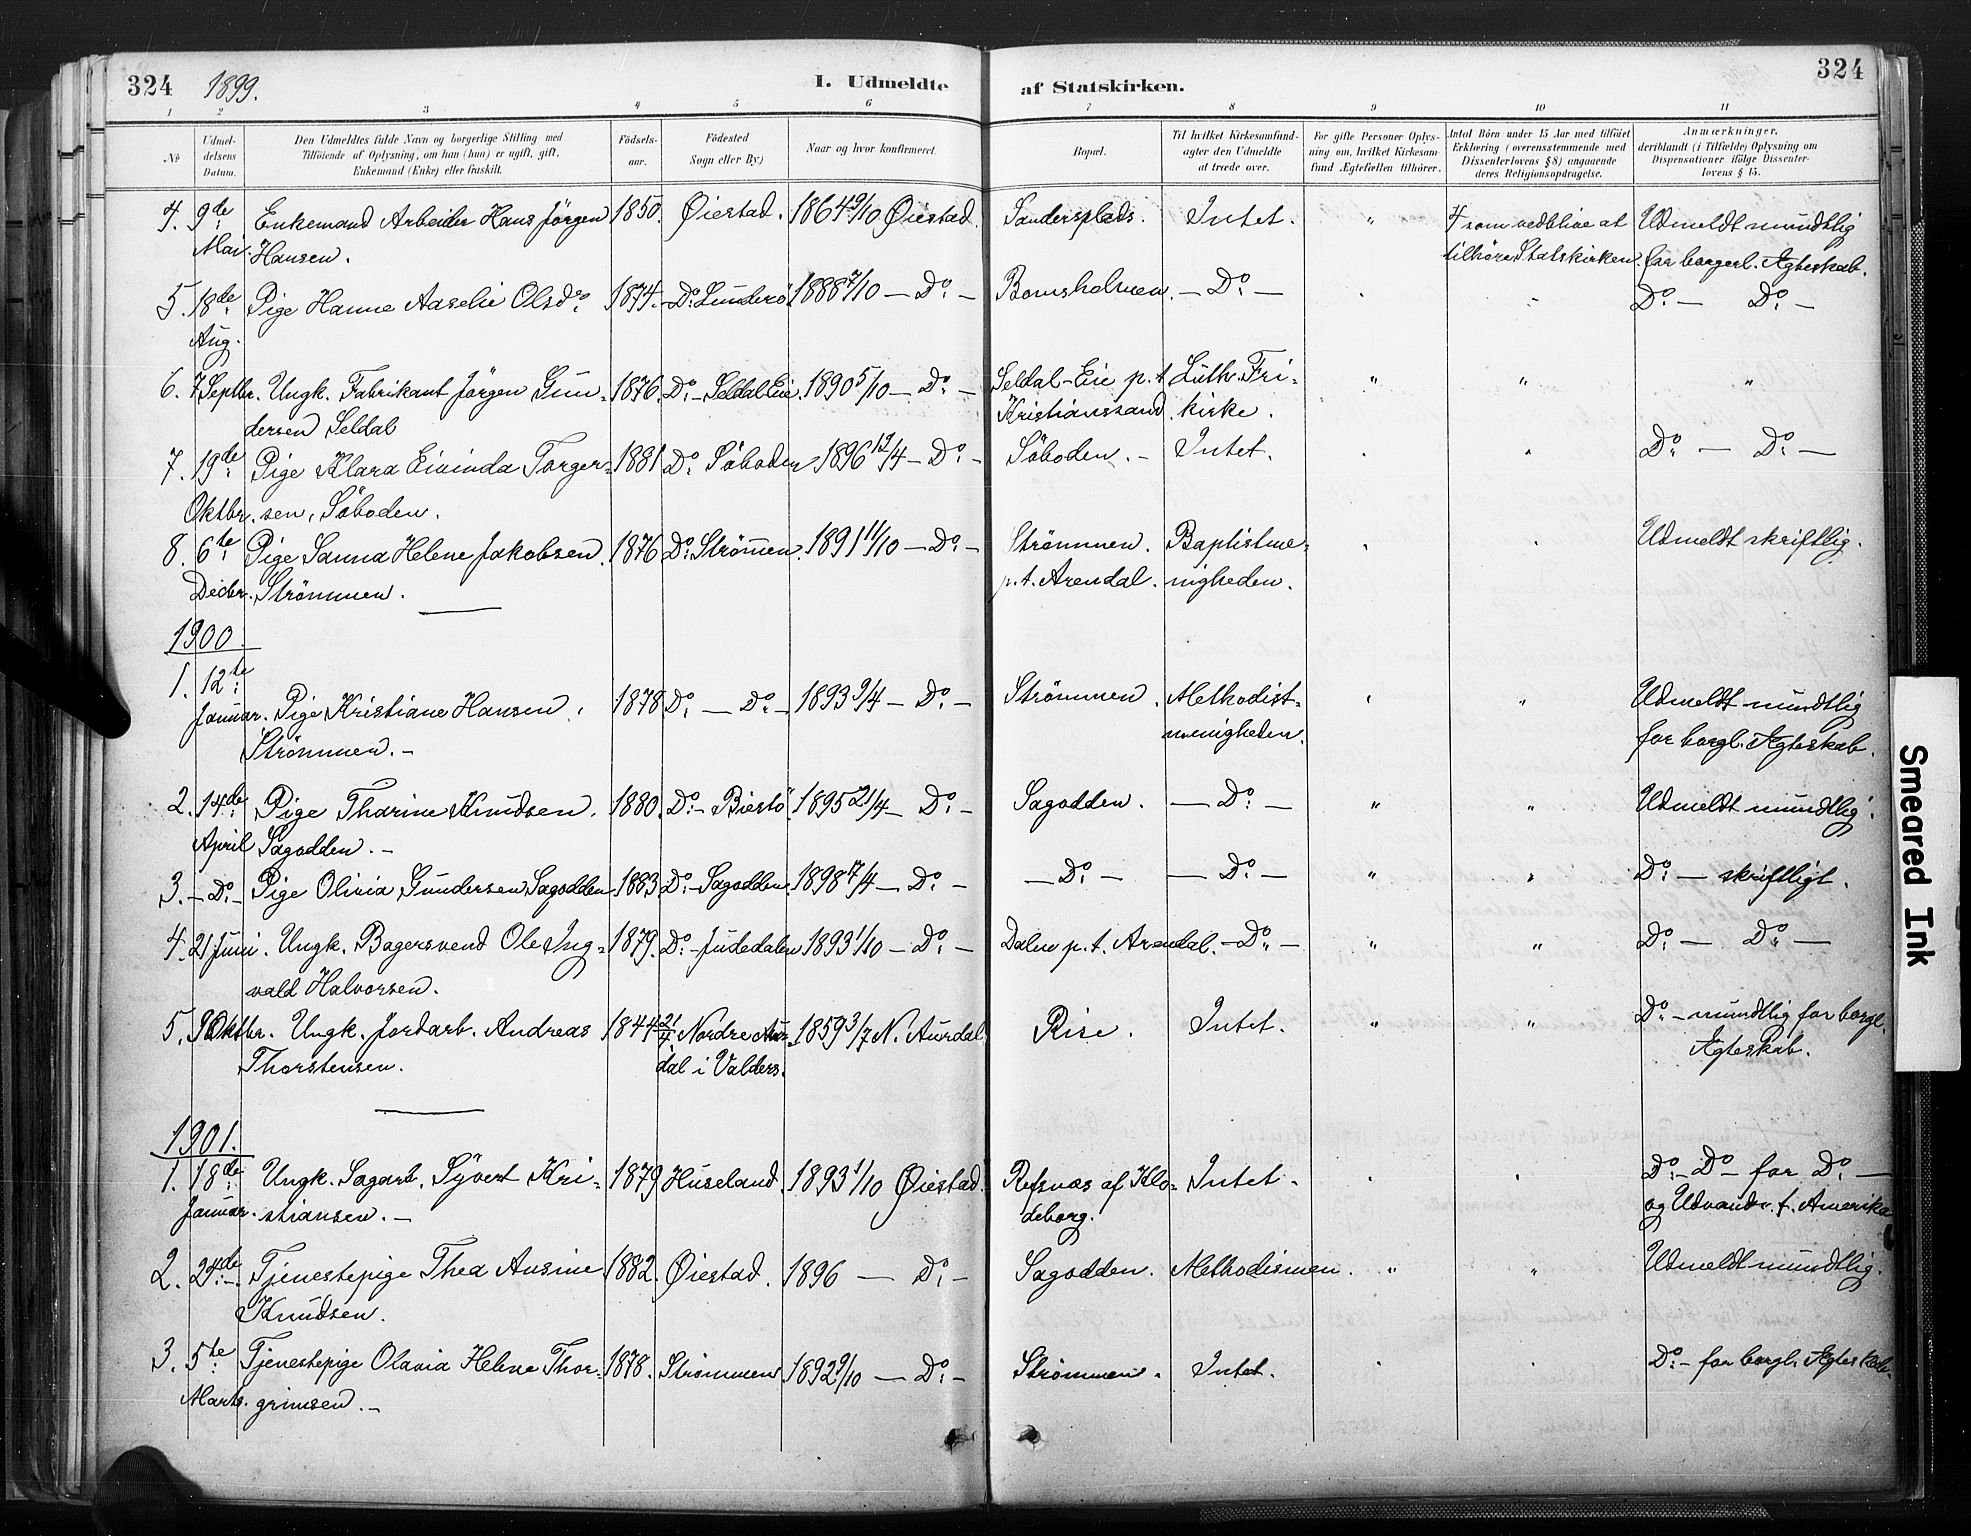 324 1899. I. Udmeldte af Statskirken. 324
1 2 3 4 5 6 7 8 9 10 11
No
Udmel-
delsens
Datum.
Den Udmeldtes fulde Navn og borgerlige Stilling med
Tilføiende af Oplysning, om han (hun) er ugift, gift,
Enkemand (Enke) eller fraskilt.
Fødsels-
aar.
Fødested
Sogn eller By.)
Naar og hvor konfirmeret.
Bopæl.
Til hvilket Kirkesamfund-
agter den Udmeldte
at træde over.
For gifte Personer Oplys-
ning om, hvilket Kirkesam-
fund Ægtefællen tilhører.
Antal Børn under 15 Aar med tilføiet
Erklæring (overensstemmende med
Dissenterlovens § 8) angaaende
deres Religionsopdragelse.
Anmærkninger,
deriblandt (i Tilfælde) Oplysning om
Dispensationer ifølge Dissenter-
lovens § 15.
4. 9de Enkemand Arbeider Hans Jörgen 1850. Øiestad. 1864 9/10 Øiestad. Sandersplads. Intet. " 4 som vedblive at Udmeldt mundtlig
Mai. Hansen. tilhöre Statskirken. for borgerl. Ægteskab.
5. 18de Pige Hanne Aaselie Olsdr 1874. Do 1888 7/10 — Do — Bomsholmen. — Do — Do — Do —
Aug.
6. 7 Septbr. Ungk. Fabrikant Jörgen Gun- 1876. Do — Seldal Eie. 1890 5/10 — Do — Seldal-Eie p.t. Luth. Fri- " " "
dersen Seldal Kristianssand. kirke.
7. 19de Pige Klara Eivinda Torger- 1881 Do Söboden 1896 12/4 — Do — Söboden. — Intet. Do — Do —
Oktbr. sen, Söboden.
8. 6te Pige Sanna Helene Jakobsen. 1876 Do Strömmen. 1891 11/10 — Do — Strömmen. Baptistme- Udmeldt skriftlig.
Decbr. Strömmen. p.t. Arendal. nigheden.
1900.
1. 12te
Januar. Pige Kristiane Hansen, 1878 Do — Do — 1893 9/4 — Do — Strömmen. Methodist- Udmeldt mundtlig
Strömmen. — menigheden. for borgl. Ægteskab.
2. 14de Pige Tharine Knudsen. 1880. Do — Biestö. 1895 21/4 — Do — Sagodden. — Do — " " Udmeldt mundtlig.
April Sagodden. —
3. — Do — Pige Olivia Gundersen Sagodden 1883. Do — Sagodden. 1898 17/4 — Do — — Do — — Do — " " Do — skriftligt.
4. 21 Juni. Ungk. Bagersvend Ole Ing- 1879. Do — Judedalen 1893 1/10 — Do — Dalen p.t. Arendal. — Do — " " Do — Do —
vald Halvorsen.
5. Oktbr. Ungk. Jordarb. Andreas 1844 21/7 Nordre Aur- 1859 3/7 N. Aurdal. Rise. Intet. " " Do — mundtlig for borgl.
Thorstensen. dal i Valders. Ægteskab.
1901.
1. 18de Ungk. Sagarb. Syvert Kri- 1879 Huseland. 1893 1/10 Øiestad. Refsnæs af Klo- Intet. Do — Do — for Do —
Januar. stiansen. — deborg. og Udvandr. t. Amerika
2. 24de — Tjenestepige Thea Ansine 1882. Øiestad. 1896 — Do — Sagodden. Methodismen. " " Udmeldt mundtlig.
Knudsen.
3. 5te Tjenestepige Olavia Helene Thor- 1878. Strömmen 1892 9/10 — Do — Strömmen. Intet. Do — for borgl. Ægteskab.
Marts. grimsen. —
Smeared Ink